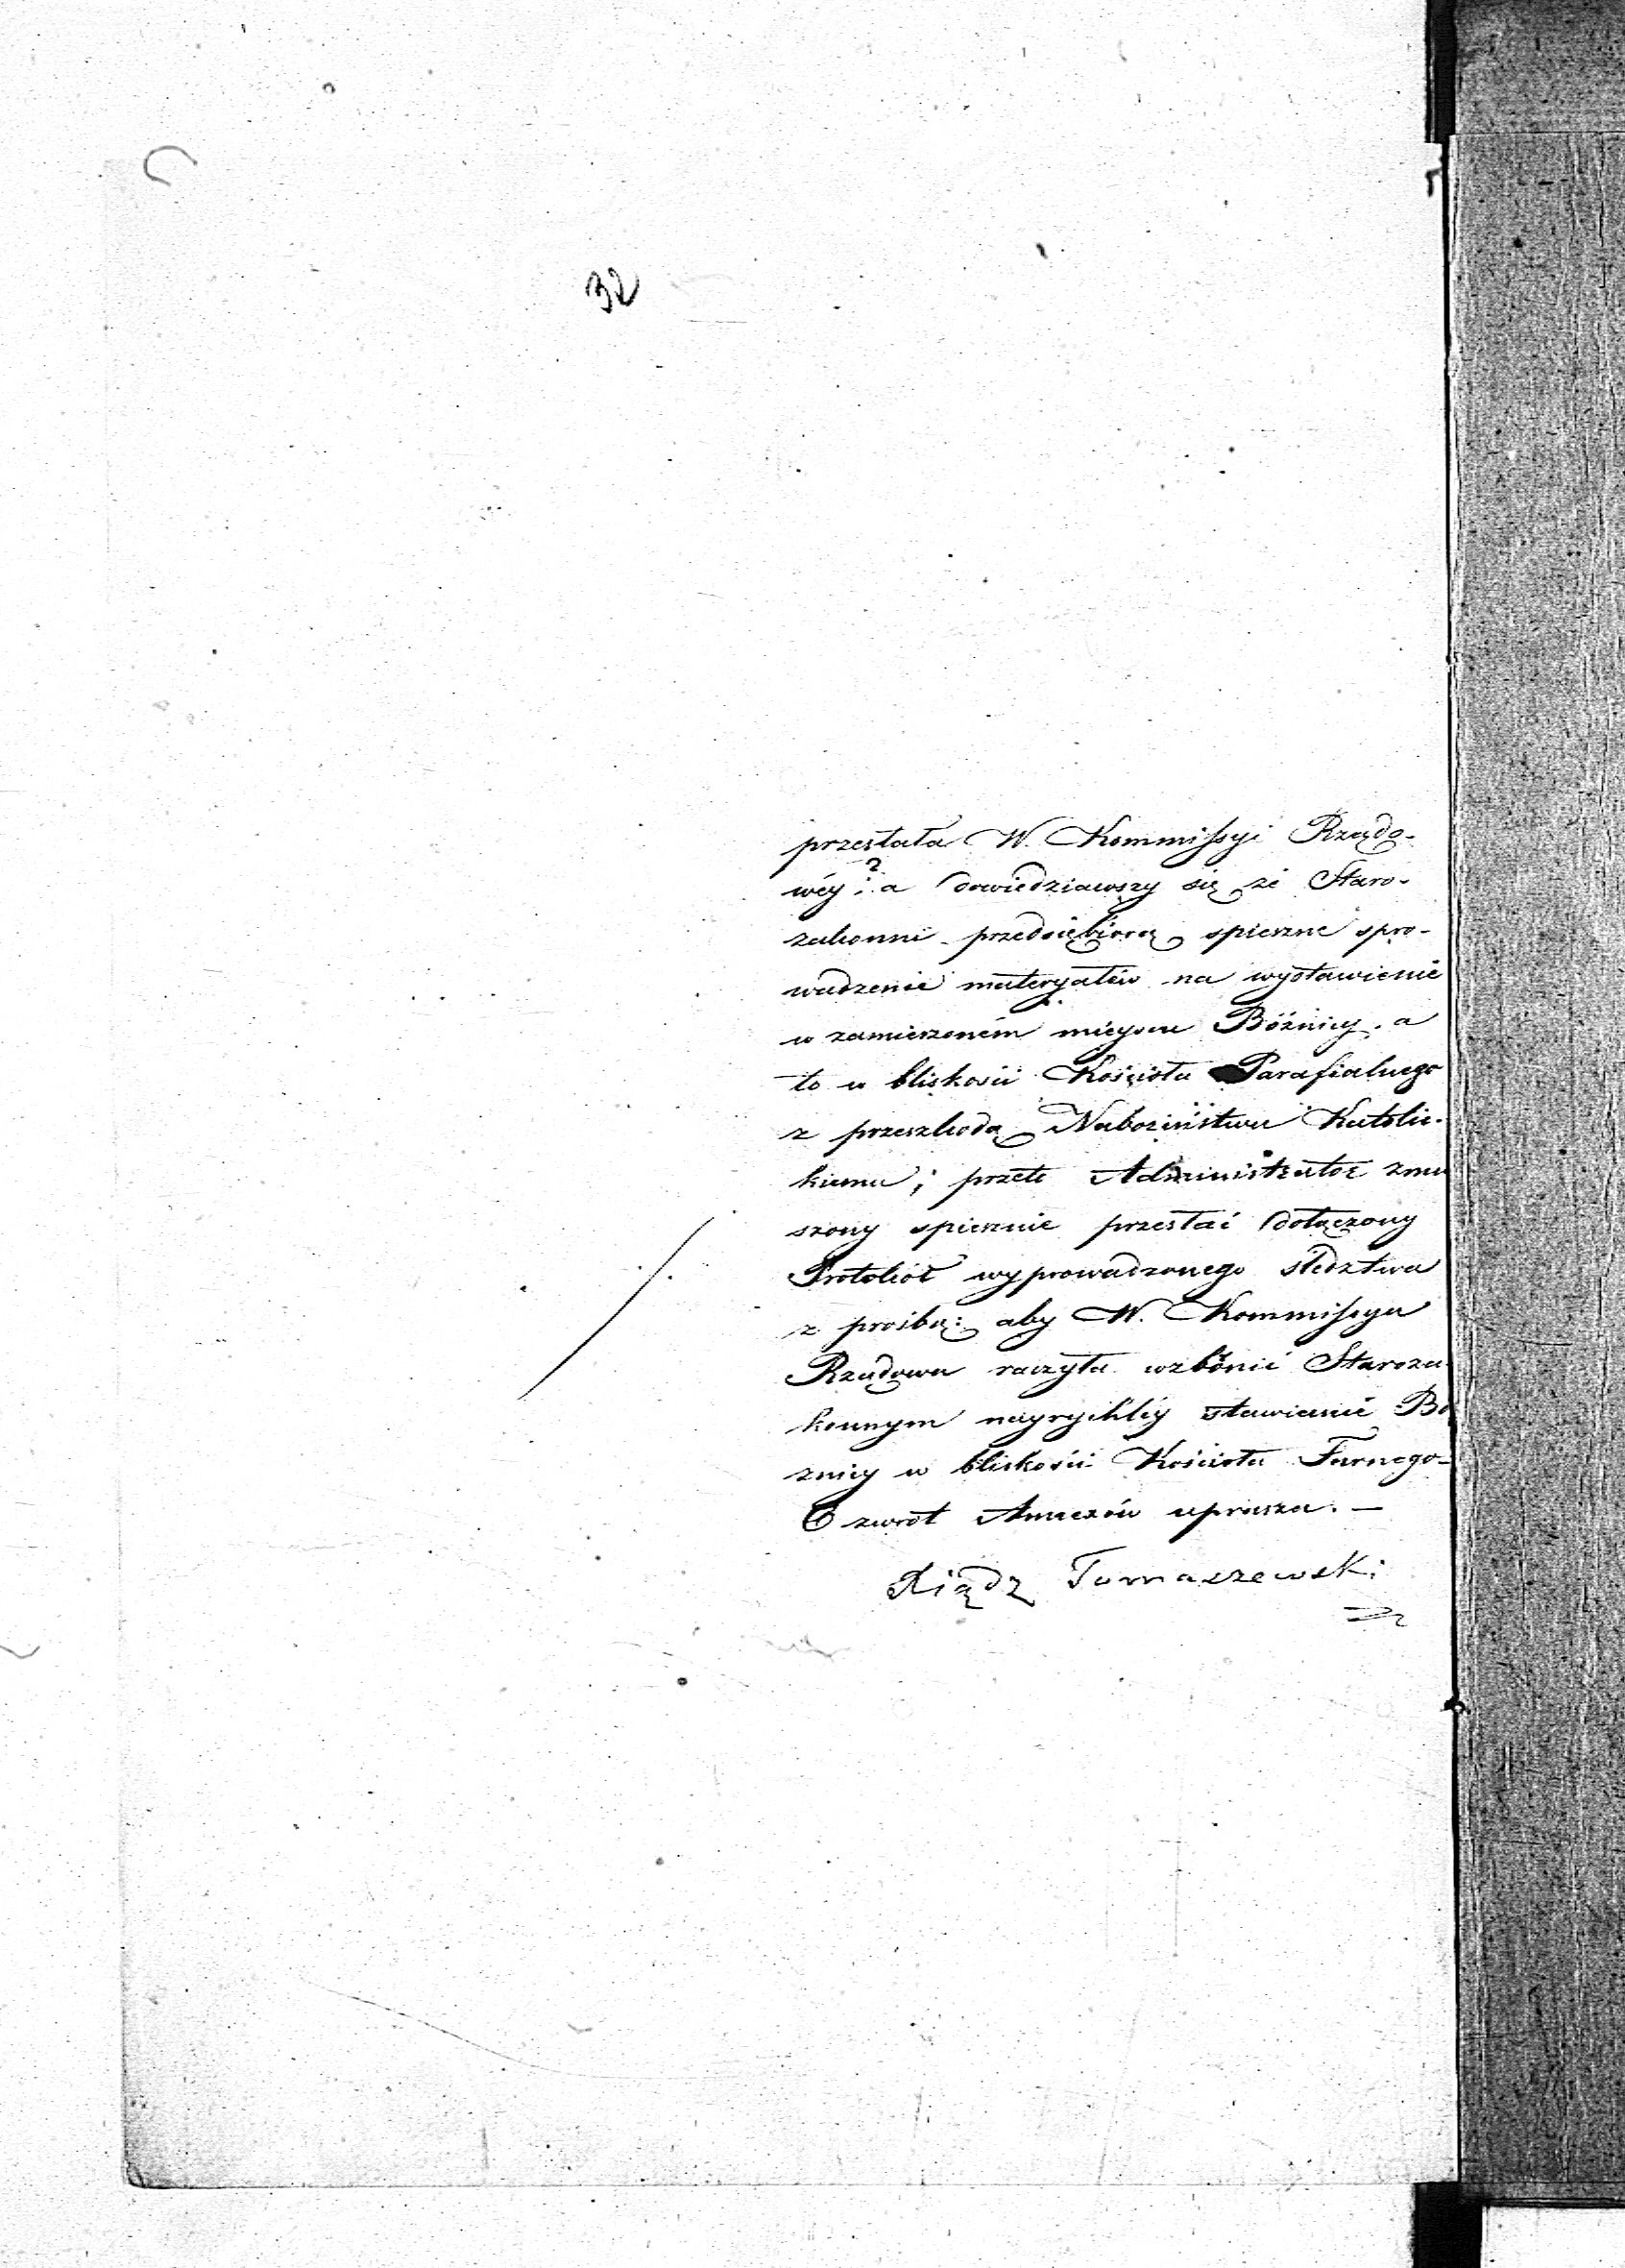 32
przesłała W. Kommissyi Rządo-
wéy? a dowiedziawszy się że Staro-
zakonni przedsiębiorą spieszne spro-
wadzenie materyałów na wystawienie
w zamierzoném mieyscu Bóżnicy, a
to w bliskości Kościoła Parafialnego
z przeszkodą Nabożeństwu Katolic-
kiemu; przeto Administrator zmu
szony spiesznie przesłać dołączony
Protokół wyprowadzonego śledztwa
z prośbą: aby W. Kommissya
Rządowa raczyła wzbónić Staroza
konnym nayrychléy stawianie Bó
żnicy w bliskości Kościoła Farnego-
O zwrot Annexów uprasza. —
Xiądz Tomaszewski